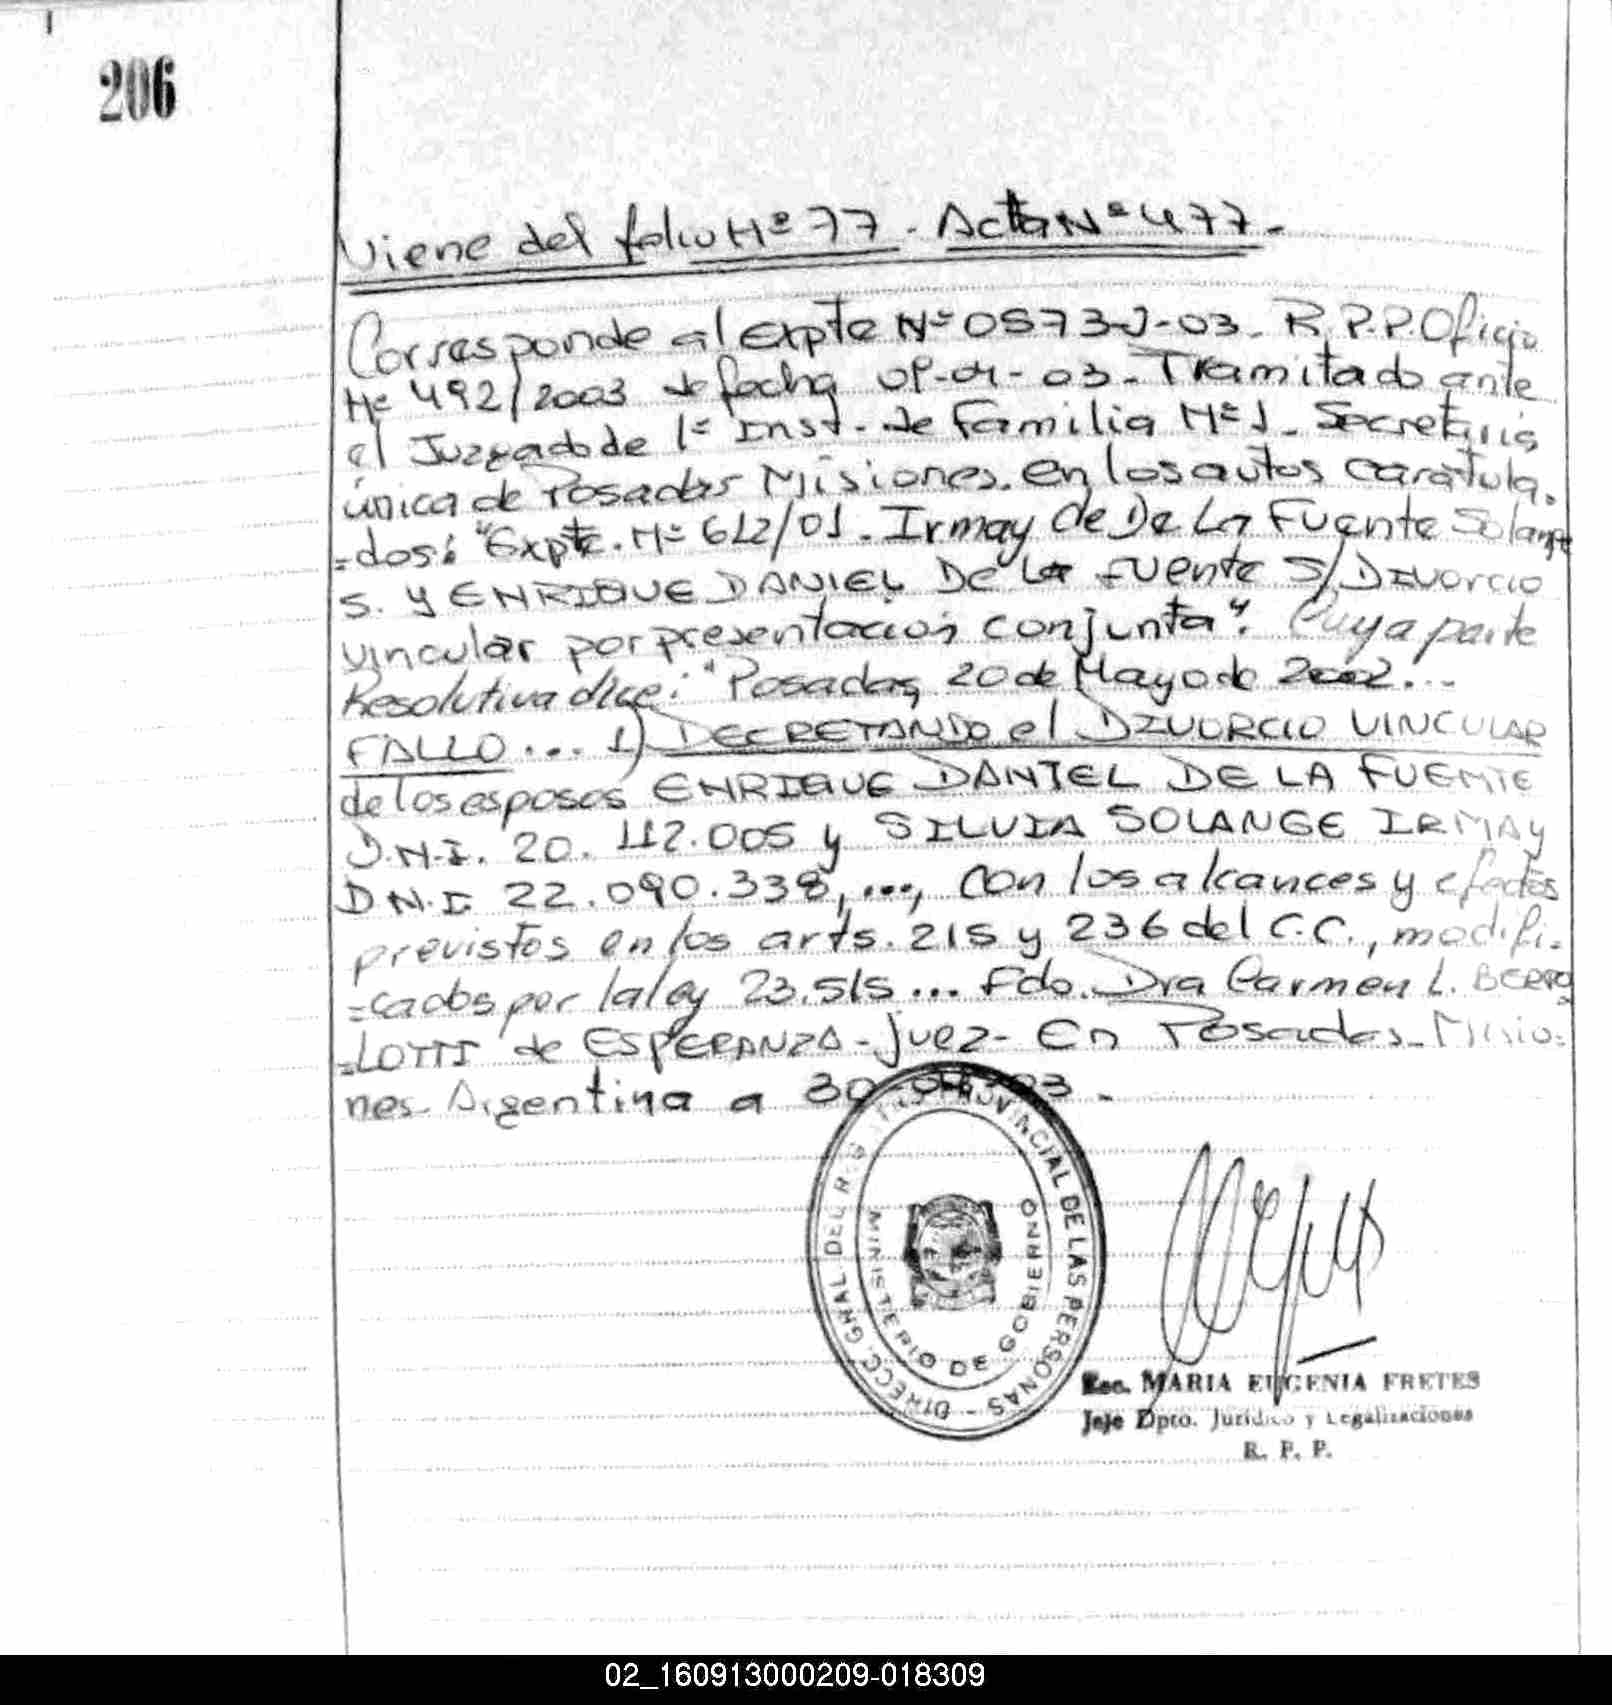 206
Viene del folio Nº 77 - Acta Nº 477.-
Corresponde al Expte Nº 0573-J-03. R.P.P. Oficio
Nº 492/2003 de fecha -03. Tramitado ante
el Juzgado de 1ª Inst. de Familia Nº 1. Secretaria
única de Posadas Misiones. en los autos caratula.
=dos: "Expte. Nº 612/01. Irmay de De La Fuente Solange
S. y ENRIQUE DANIEL De La Fuente S/ Divorcio
vincular por presentación conjunta". Cuya parte
Resolutiva dice: "Posadas, 20 de Mayo de 2002...
FALLO... 1) DECRETANDO el DIVORCIO VINCULAR
de los esposos ENRIQUE DANIEL DE LA FUENTE
D.N.I. 20.112.005 y SILVIA SOLANGE IRMAY
D.N.I. 22.090.338, ..., con los alcances y efectos
previstos en los arts. 215 y 236 del C.C., modifi-
=cados por la ley 23.515... Fdo. Dra Carmen L. BERRO
=LOTTI de ESPERANZA - Juez - En Posadas - Misio-
nes - Argentina a 30- -03.-
DIRECC. GRAL. DEL REGISTRO PROVINCIAL DE LAS PERSONAS -
MINISTERIO DE GOBIERNO
Esc. MARIA EUGENIA FRETES
Jefe Dpto. Jurídico y Legalizaciones
R. P. P.
02_160913000209-018309